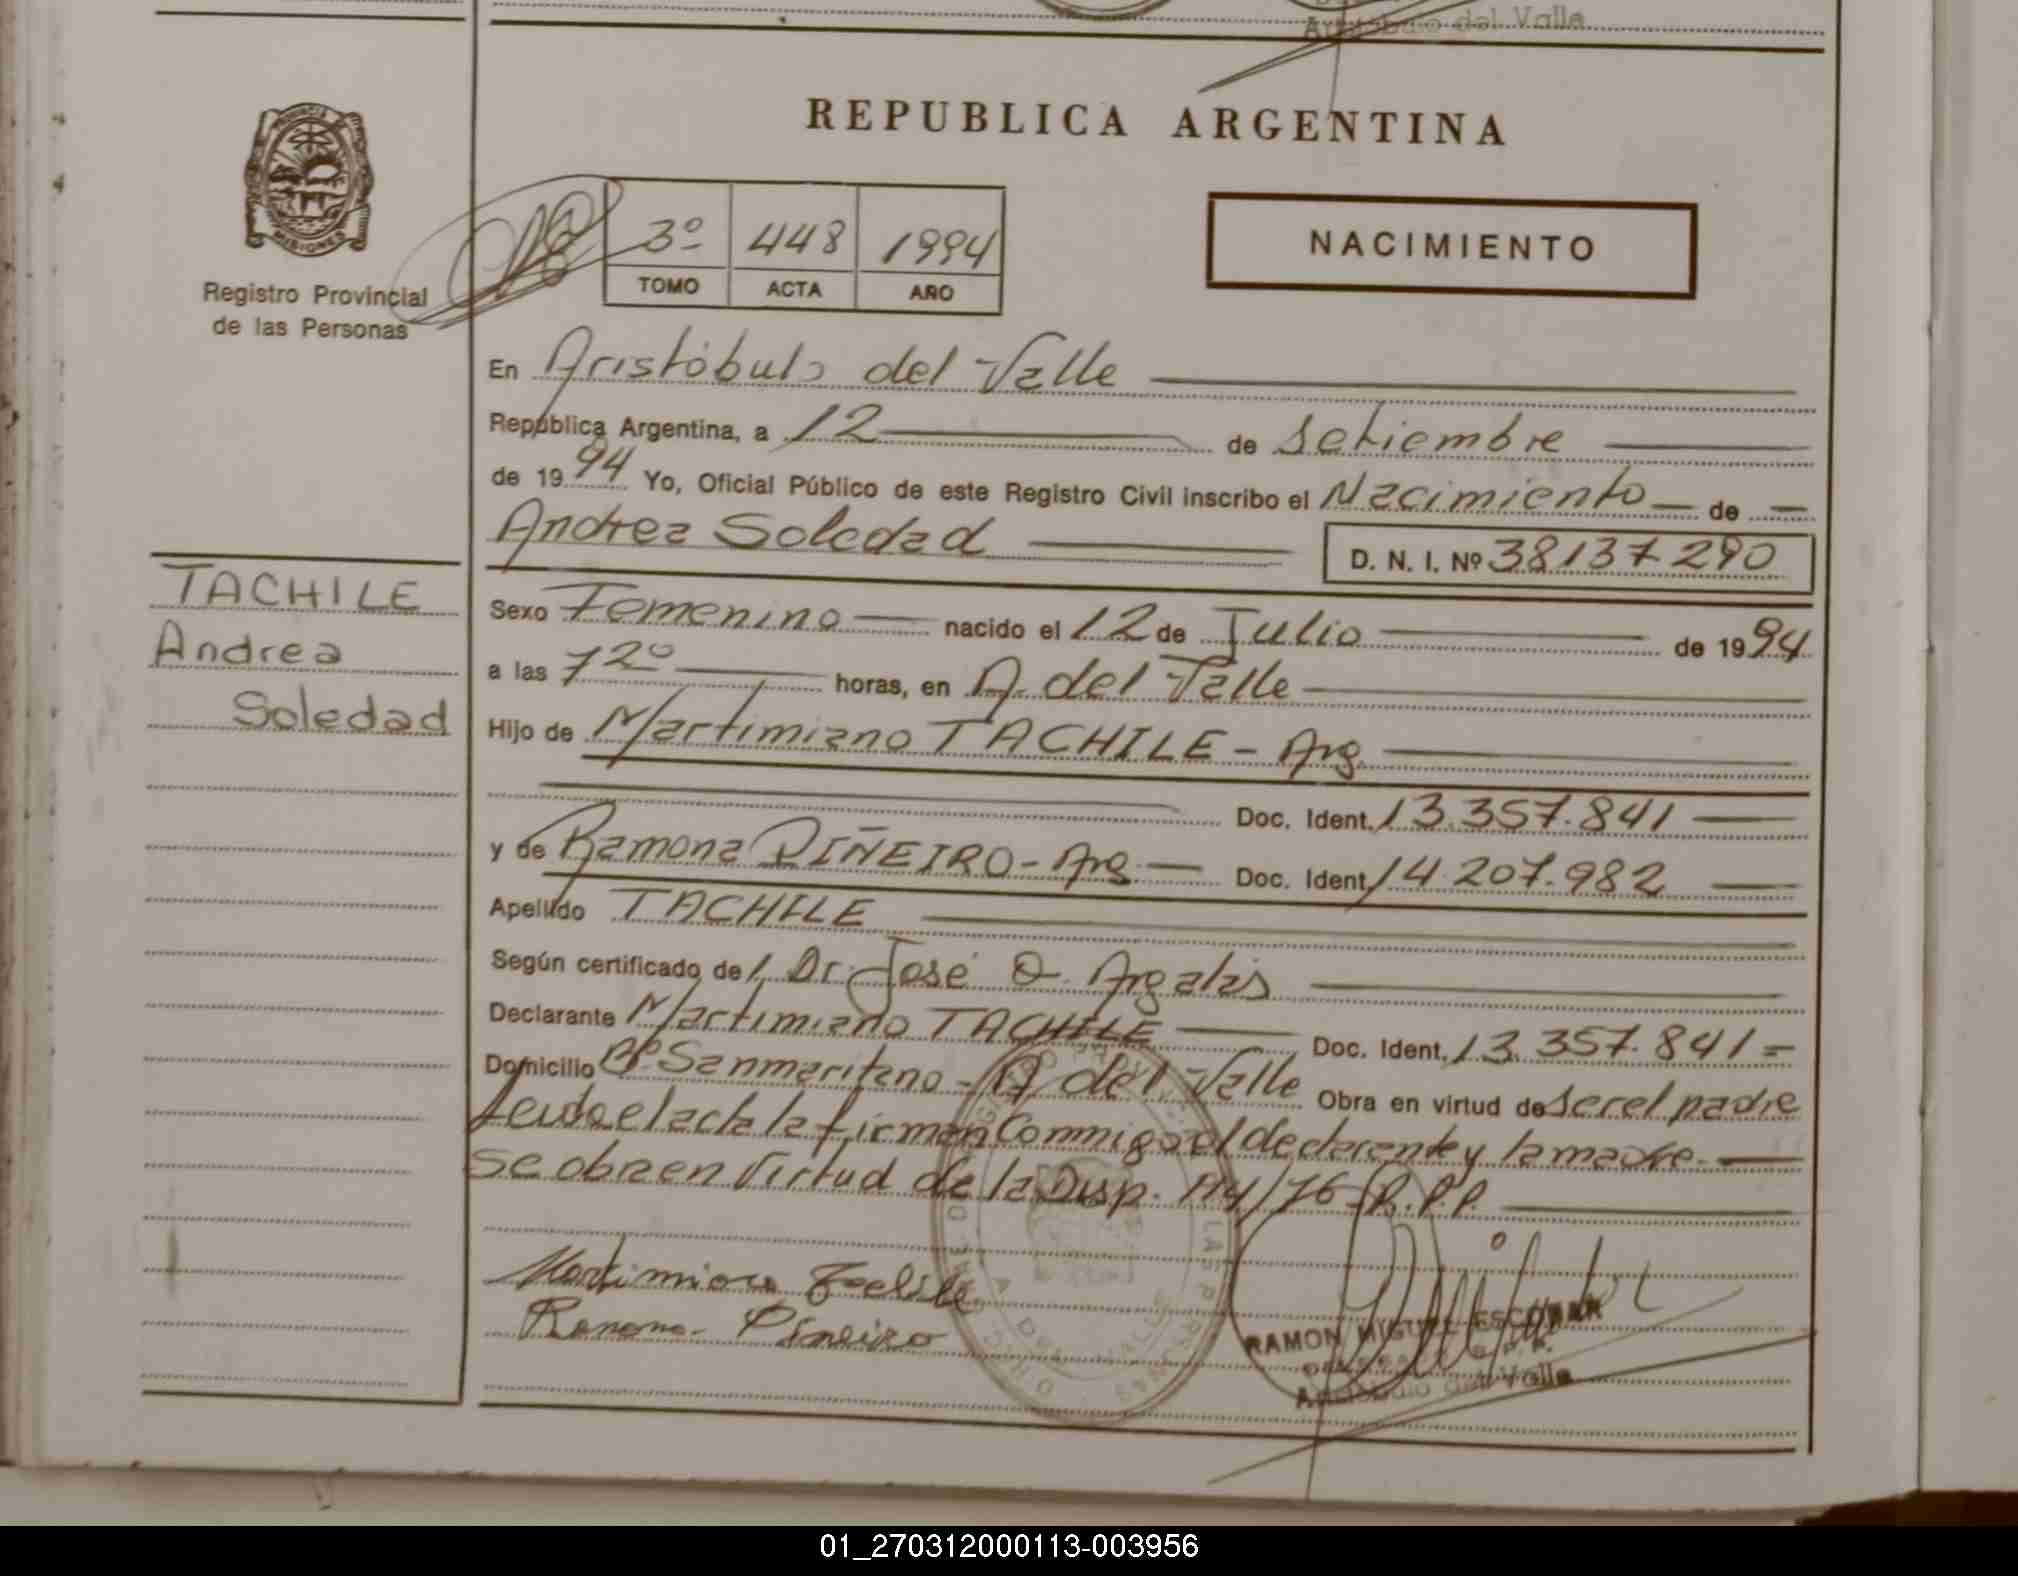 Aristóbulo del Valle
REPUBLICA ARGENTINA
PROVINCIA
MISIONES
Registro Provincial
de las Personas
3º 448 1994
TOMO ACTA AÑO
NACIMIENTO
En Aristóbulo del Valle
República Argentina, a 12 de Setiembre
de 1994 Yo, Oficial Público de este Registro Civil inscribo el Nacimiento de
Andrea Soledad D. N. I. Nº 38137290
TACHILE
Andrea
Soledad
Sexo Femenino nacido el 12 de Julio de 1994
a las 7 20 horas, en A. del Valle
Hijo de Martimiano TACHILE - Arg.
Doc. Ident. 13.357.841
y de Ramona PIÑEIRO - Arg Doc. Ident. 14.207.982
Apellido TACHILE
Según certificado de l Dr. José O. Argalas
Declarante Martimiano TACHILE Doc. Ident. 13.357.841 =
Domicilio Bº Sanmaritano - A del Valle Obra en virtud de ser el padre
Leida el acta la firman Conmigo el declarante y la madre.
Se obra en Virtud de la Disp. 114/76 R.P.P.
Ramona Piñeiro
RAMON MIGUEL ESCOBAR
Aristóbulo del Valle
01_270312000113-003956